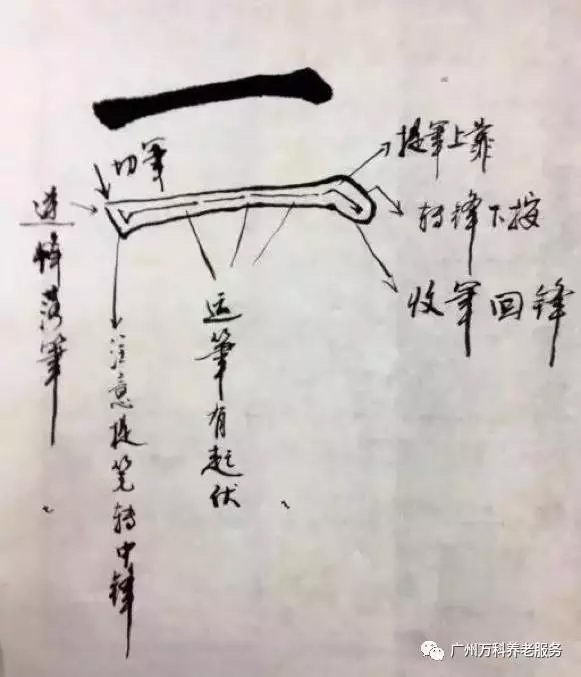 切笔
提笔上靠
转锋下按
收笔回锋
运笔有起伏
注意提笔转中锋
落笔
广州万科养老服务